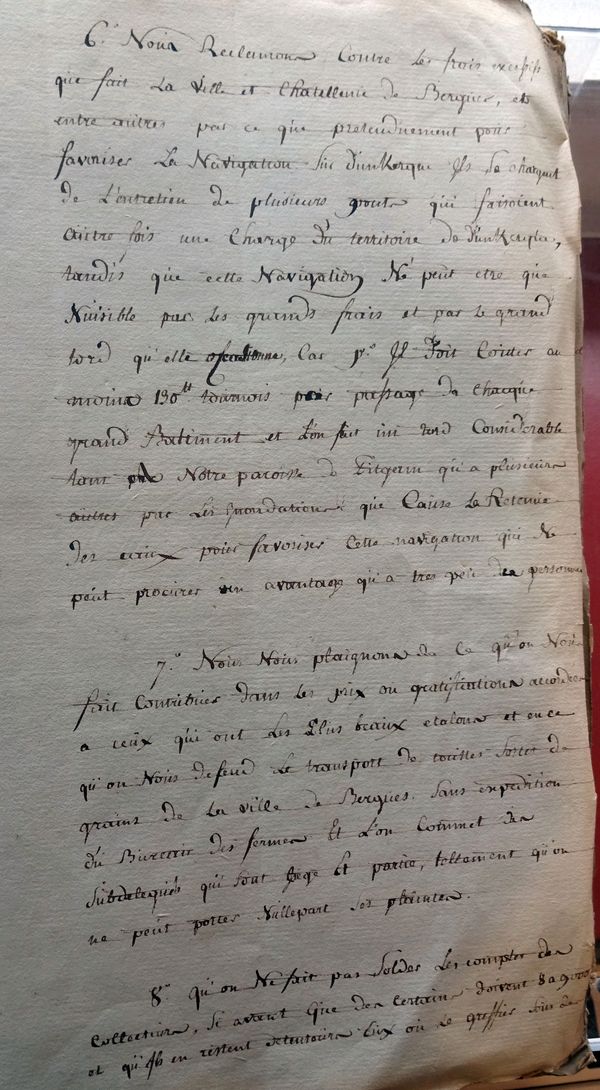 6.° Nous Reclamons Contre les frais excessifs
que fait La Ville et Chatellenie de Bergues, et
entre autres par ce que pretenduement pour
favoriser La Navigation sur dunkerque Ils se chargent
de L'entretien de plusieurs ponts qui faisoient
autre fois une Charge du territoire de dunkerque,
tandis que cette Navigation Ne peut etre que
Nuisible par les grands frais et par le grand
tord qu'elle occasionne, Car 1.° Il doit Couter au
moins 130 tt tournois pour passage de Chacque
grand Batiment et L'on fait un tord Considerable
tant Notre paroisse de Pitgam qu'a plusieurs
autres par les Inondations que Cause la Retenue
des eaux pour favoriser Cette navigation qui Ne
peut procurer un avantage qu'a tres peu de personnes
7.° Nous Nous plaignons de Ce qu'on Nous
fait Contribuer dans les prix ou gratifications accordées
a ceux qui ont les Plus beaux etalons et en ce
qu'on Nous defend Le transport de touttes sortes de
grains de La ville de Bergues. Sans expedition
du Bureau des fermes Et L'on Commet des
Subdelegués qui sont Juge Et partie, tellement qu'on
ne peut porter Nullepart ses plaintes.
8.° qu'on Ne fait pas Solder les comptes des
Collecteurs, si avant que des Certains doivent 8 a 9000
et qu'ils en restent detenteurs Eux ou Le greffier sous de